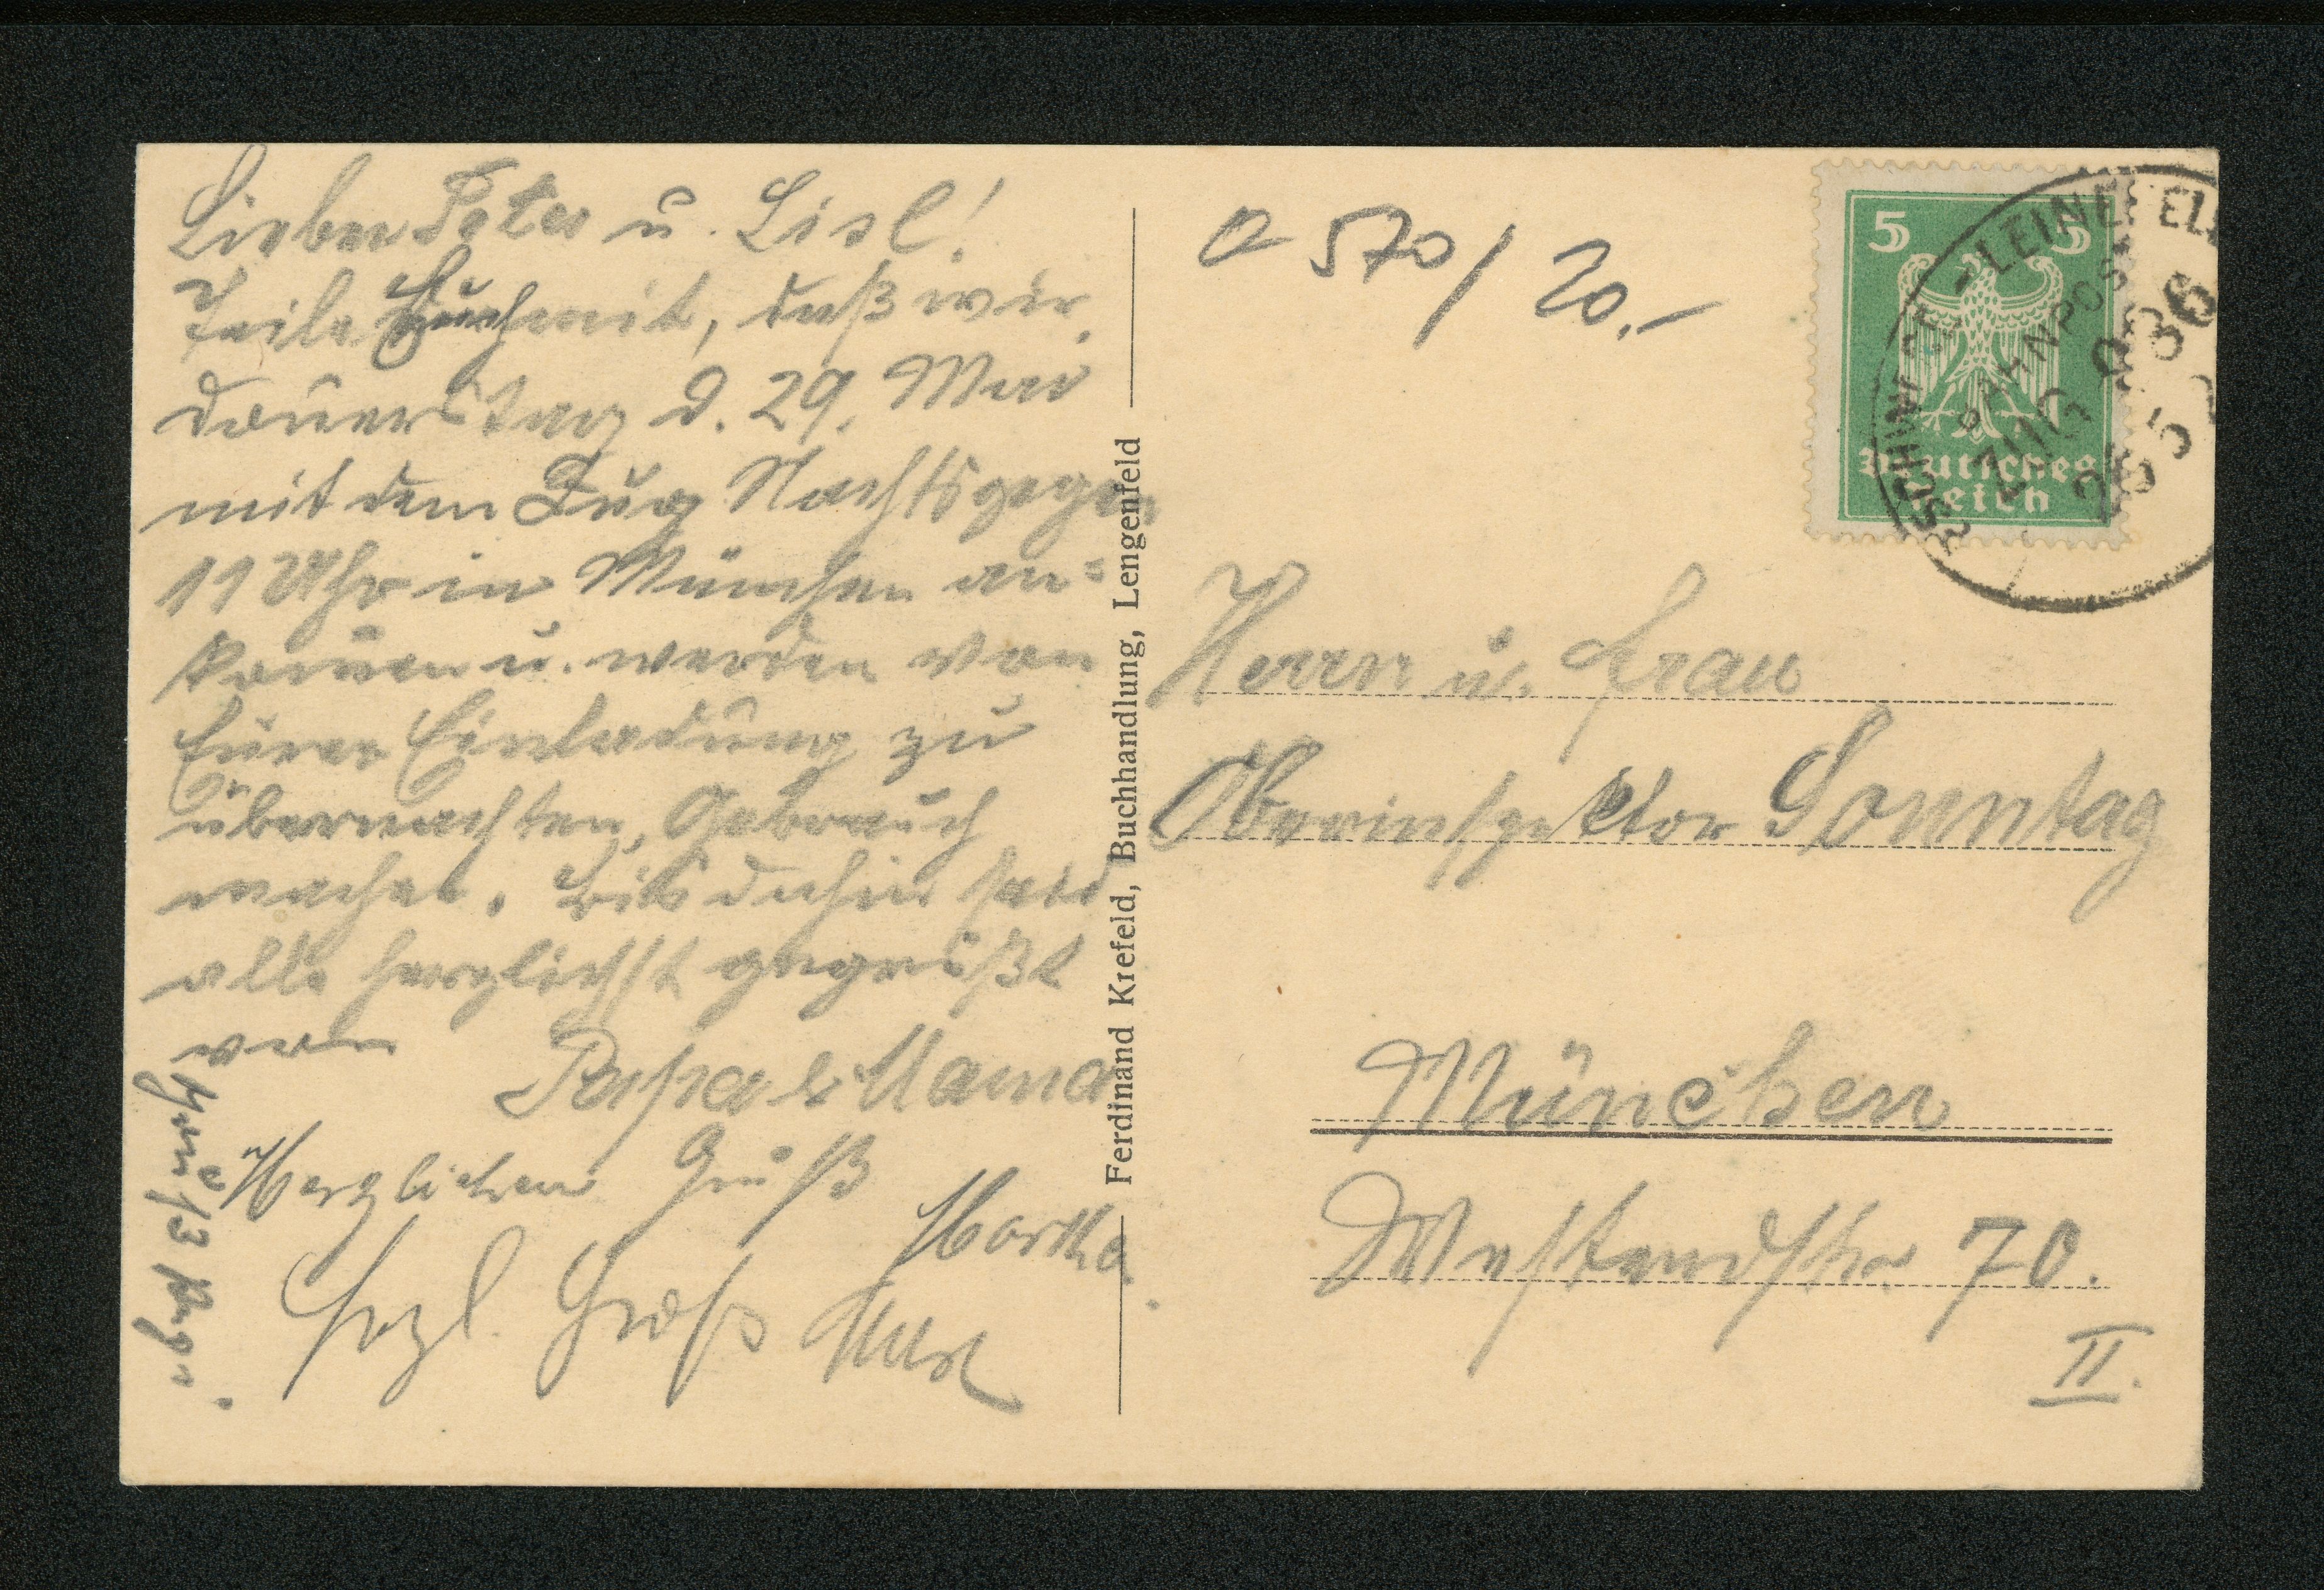 Lieber Peter u. Lisl!
Teile Euch mit, daß wir
Donnerstag d. 29. Mai
mit dem Zug Nachts gegen
11 Uhr in München an=
kom̅en u. werden von
Eurer Einladung zu
übernachten, Gebrauch
machen. Bis dahin seid
alle herzlichst gegrüßt
von
Papa & Mama
Herzlichen Gruß
Martha.
Hrzl. Gruß
Ferdinand Krefeld, Buchhandlung, Lengenfeld
a 570/20.-
5 5
Deutsches
Reich
LEINE
BAHNPOST
ZUG
Herrn u. Frau
Oberinspektor Sonntag
München
Westendstr 70.
II.